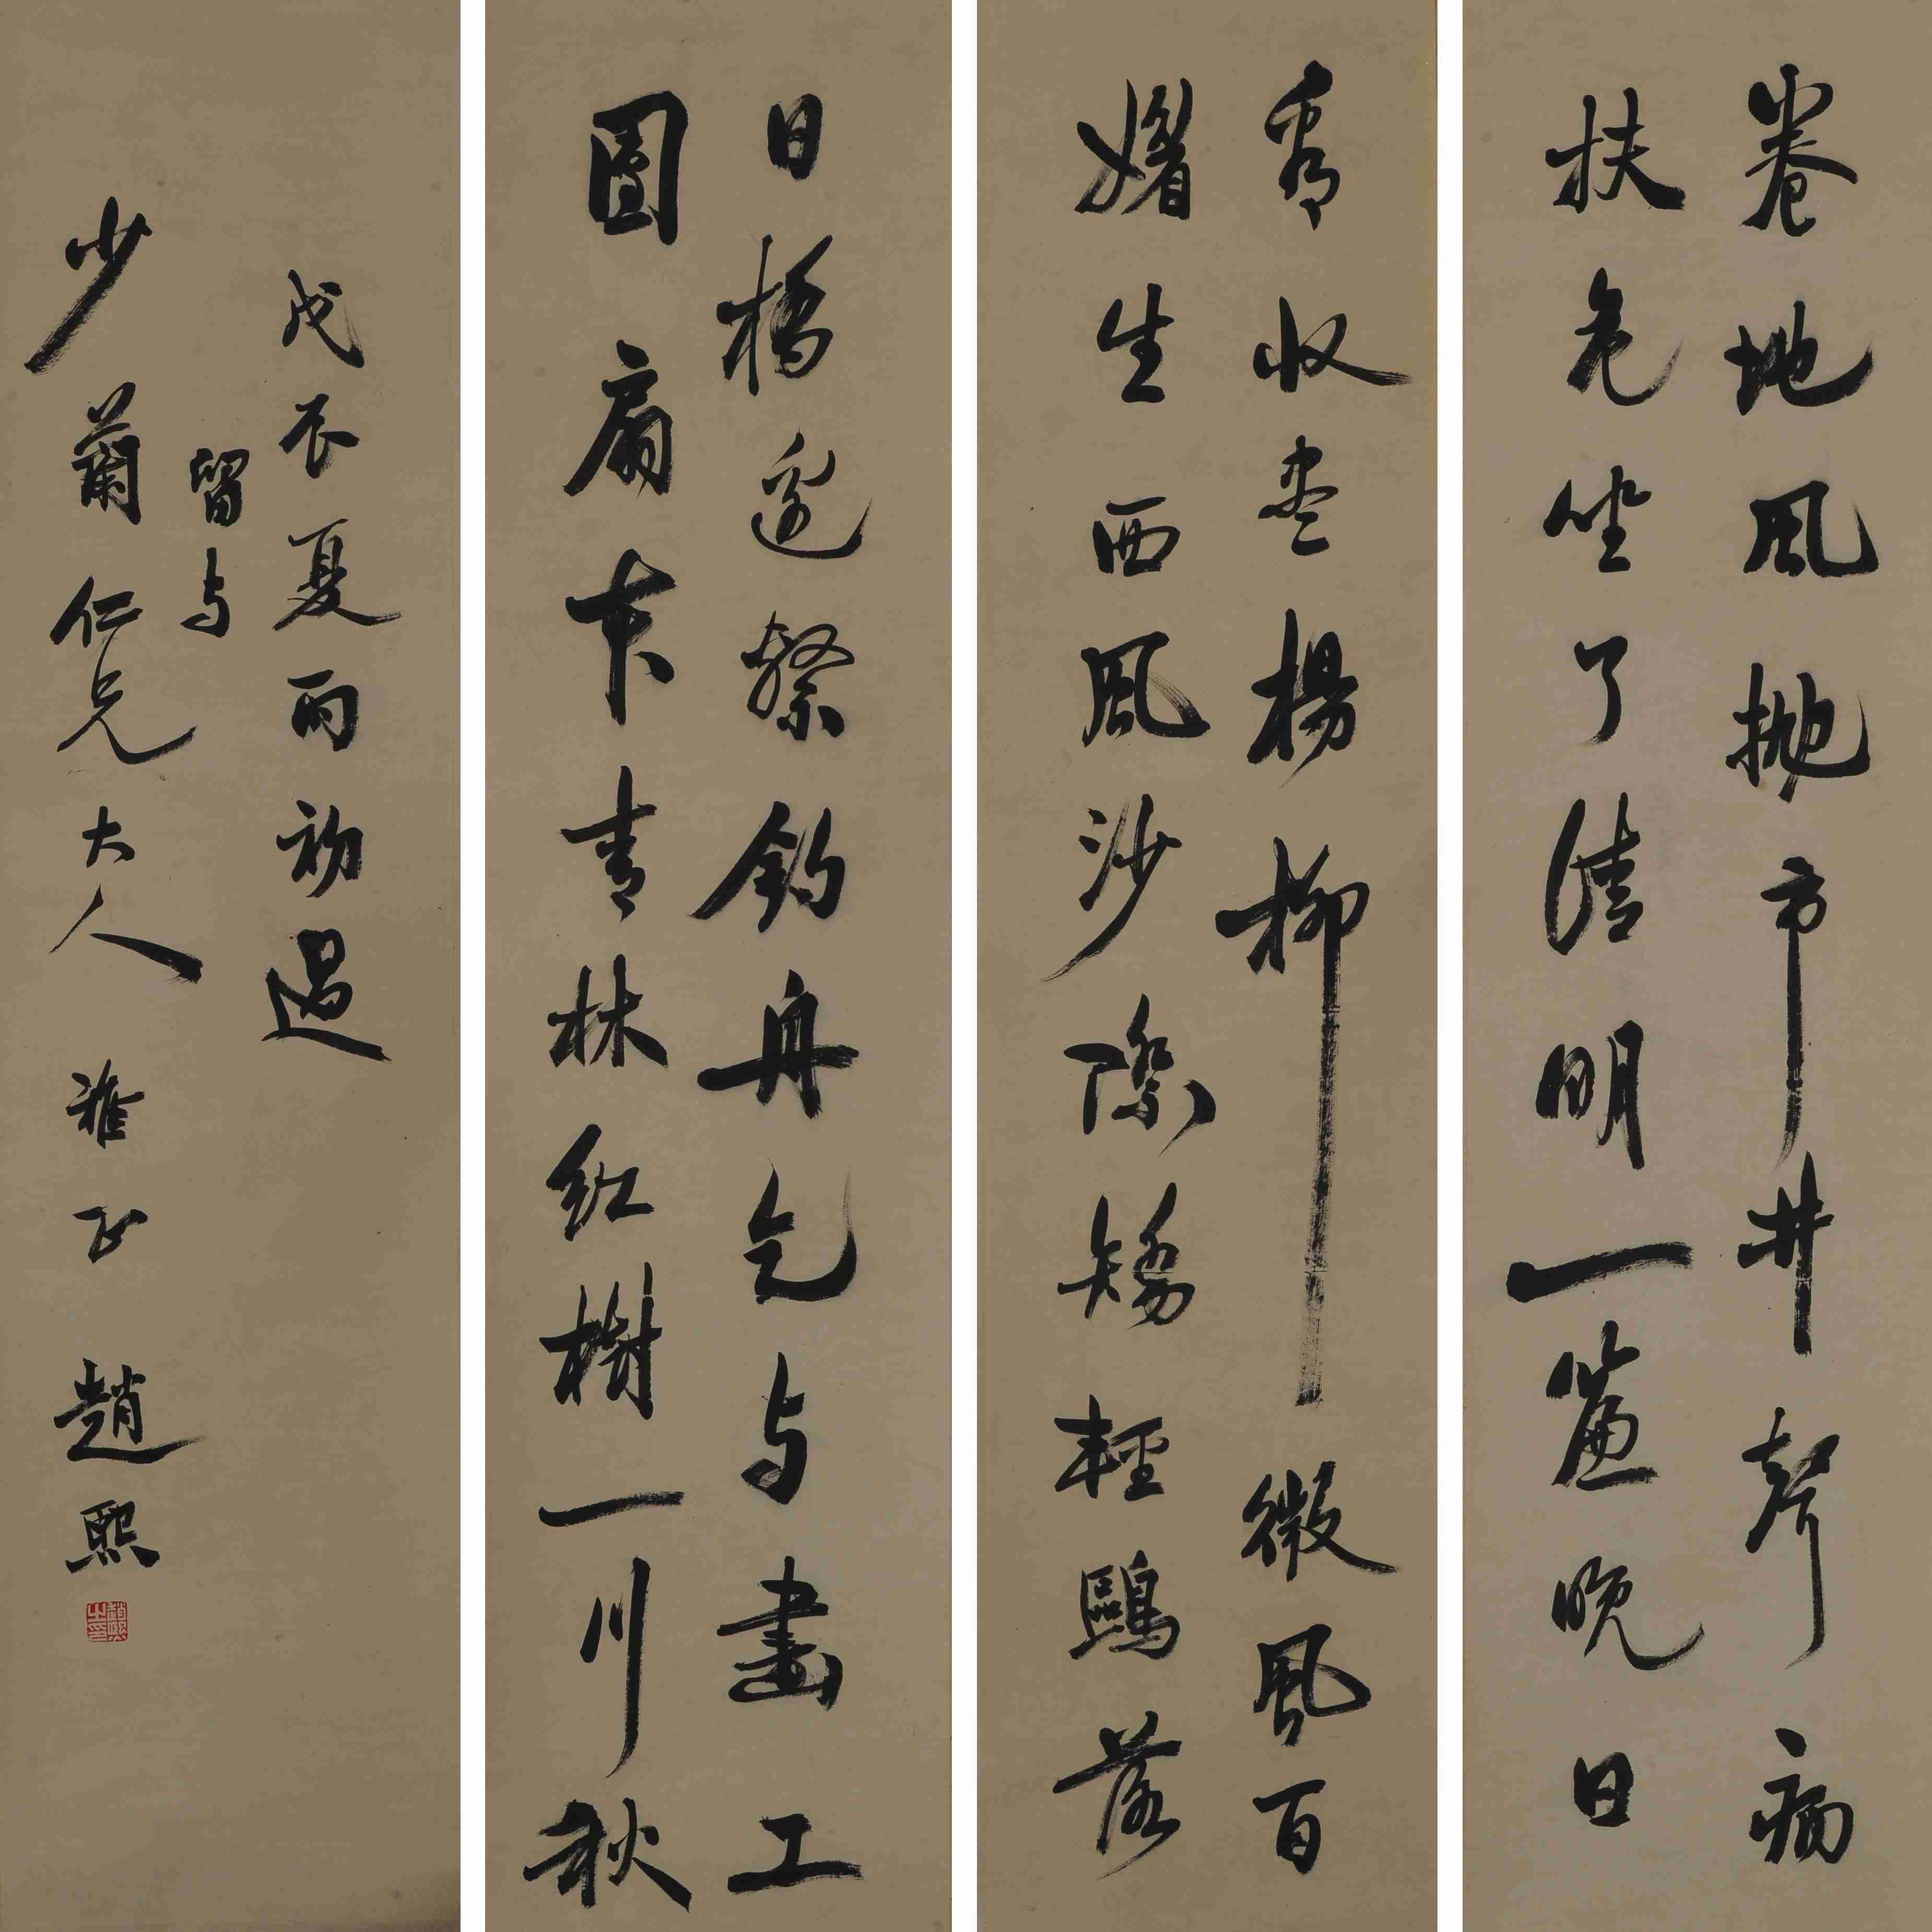 卷地風拋市井聲病
扶危坐了清明一簾晚日
看收盡楊柳微風百
媚生西風沙際矯輕鷗落
日橋邊繫釣舟乞与畫工
團扇本青林紅樹一川秋
戊辰夏雨初過
留与
少蘭仁兄大人雅正 趙熙
趙熙之印